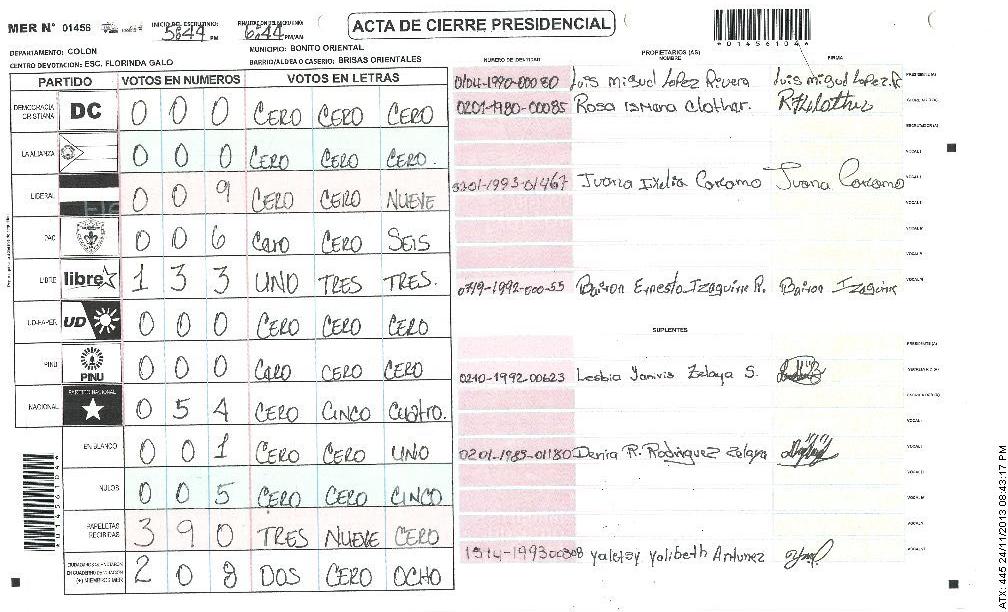 MER N° 01456 INICIO DEL ESCRUTINIO: 5:44 PM FINALIZACION DEL ESCRUTINIO: 6:44 PM/AM
ACTA DE CIERRE PRESIDENCIAL
*01456104*
DEPARTAMENTO: COLON MUNICIPIO: BONITO ORIENTAL
CENTRO DE VOTACION: ESC. FLORINDA GALO BARRIO/ALDEA O CASERIO: BRISAS ORIENTALES
PARTIDO VOTOS EN NUMEROS VOTOS EN LETRAS
DEMOCRACIA CRISTIANA DC 0 0 0 CERO CERO CERO
LA ALIANZA 0 0 0 CERO CERO CERO.
LIBERAL 0 0 9 CERO CERO NUEVE
PAC 0 0 6 Cero CERO SEIS
LIBRE libre 1 3 3 UNO TRES TRES.
UD-FAPER UD 0 0 0 CERO CERO CERO
PINU PINU 0 0 0 CERO CERO CERO
NACIONAL PARTIDO NACIONAL 0 5 4 CERO CINCO CUATRO.
EN BLANCO 0 0 1 CERO CERO UNO
NULOS 0 0 5 CERO CERO CINCO
PAPELETAS RECIBIDAS 3 9 0 TRES NUEVE CERO
CIUDADANOS QUE VOTARON EN CUADERNO DE VOTACION (+) MIEMBROS MER 2 0 8 DOS CERO OCHO
NUMERO DE IDENTIDAD PROPIETARIOS (AS) NOMBRE FIRMA
0104-1990-00080 Luis Miguel Lopez Rivera Luis Miguel Lopez R PRESIDENTE(A)
0201-1980-00085 Rosa Ismara Clother.
ESCRUTADOR(A)
VOCAL I
0201-1993-01467 Juana Ixelia Carcamo Juana Carcamo
0719-1992-000-55 Bairon Ernesto Izaguirre R. Bairon Izaguirre
SUPLENTES
PRESIDENTE(A)
0210-1992-00623 Lesbia Yanivis Zelaya S.
0201-1985-01180 Denia R. Rodriguez Zelaya
1514-1993 00808 Yalexy Yolibeth Antunez
*01456104*
ATX: 445 24/11/2013 08:43:17 PM